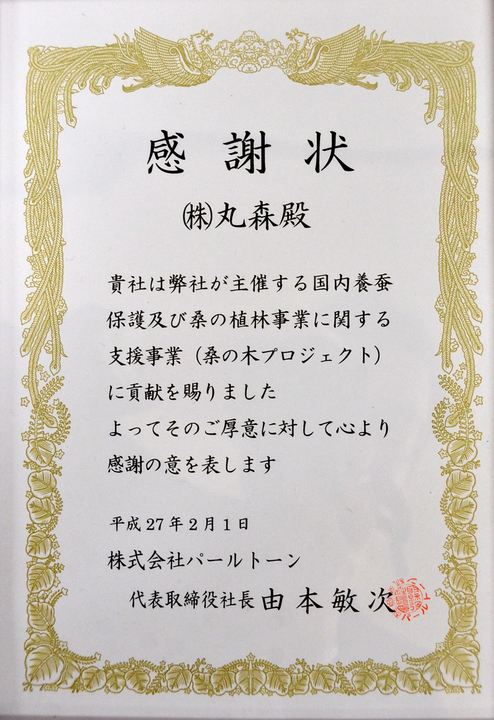 感謝状
㈱丸森殿
貴社は弊社が主催する国内養蚕
保護及び桑の植林事業に関する
支援事業（桑の木プロジェクト）
に貢献を賜りました
よってそのご厚意に対して心より
感謝の意を表します
平成27年2月1日
株式会社パールトーン
代表取締役社長 由本敏次